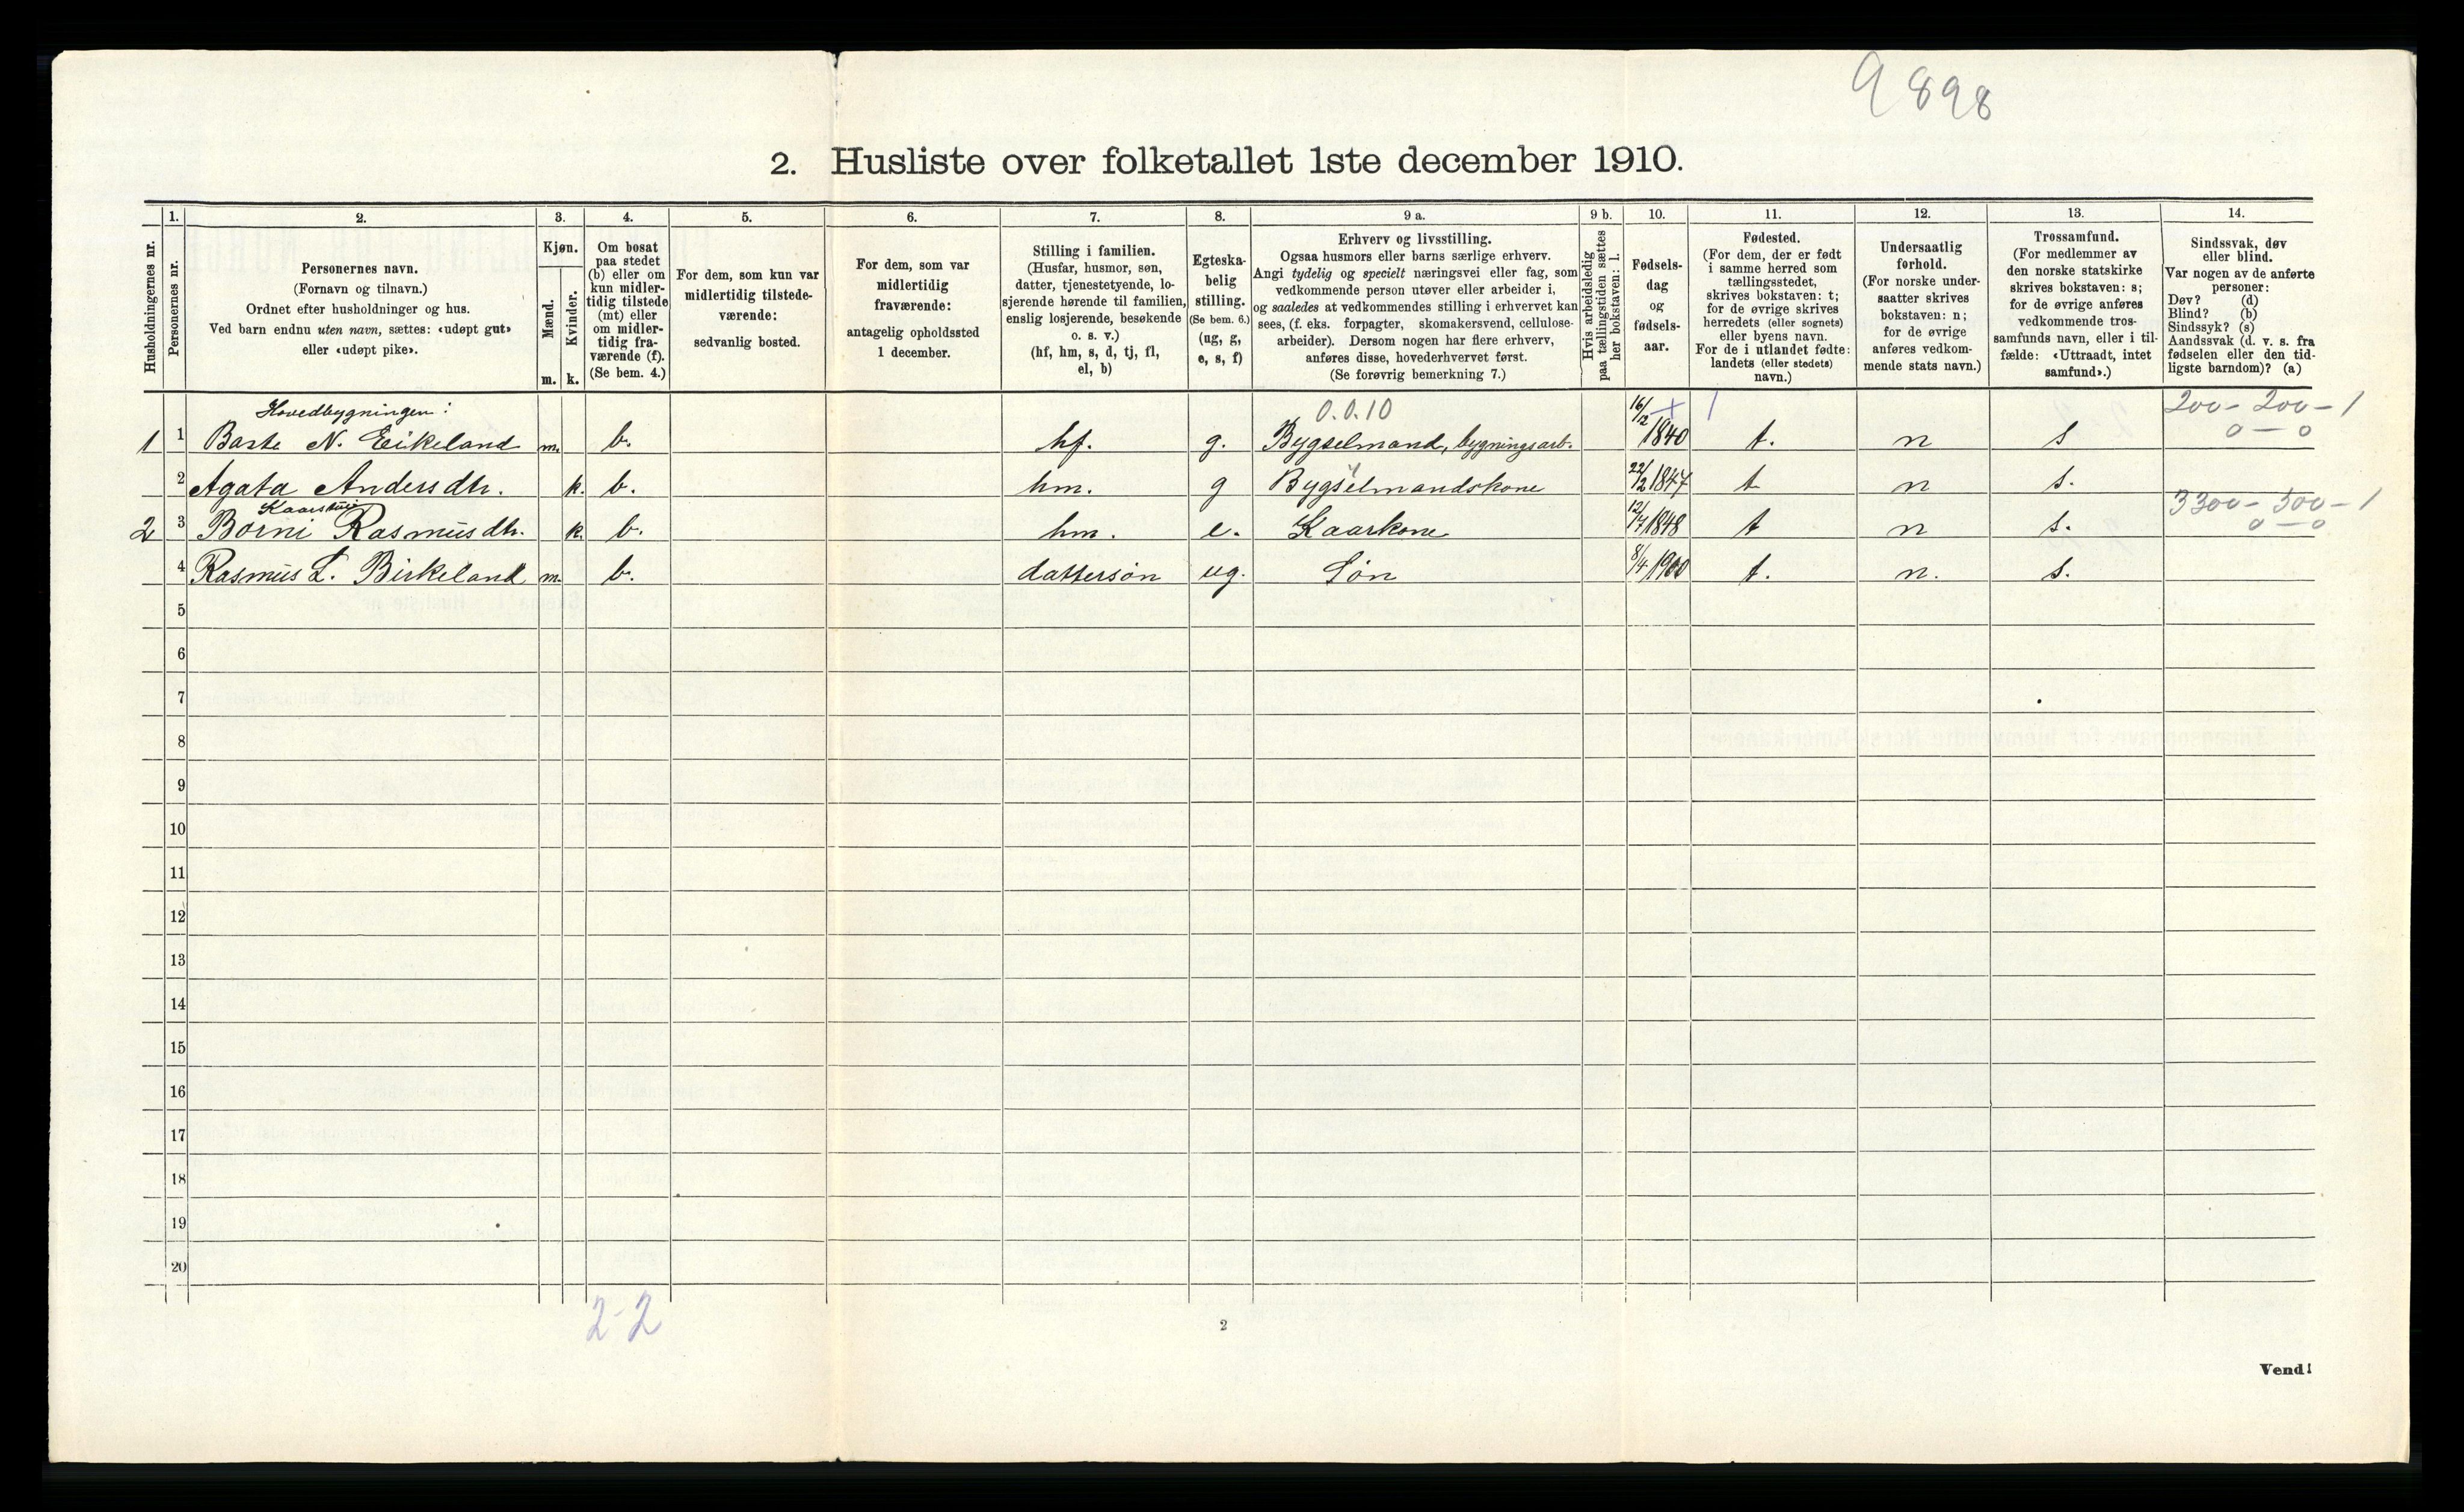 9898
2. Husliste over folketallet 1ste december 1910.
Husholdningernes nr.
1.
Personernes nr.
2.
Personernes navn.
(Fornavn og tilnavn.)
Ordnet efter husholdninger og hus.
Ved barn endnu uten navn, sættes: «udøpt gut»
eller «udøpt pike».
3.
Kjøn.
Mænd.
Kvinder.
m. k.
4.
Om bosat
paa stedet
(b) eller om
kun midler-
tidig tilstede
(mt) eller
om midler-
tidig fra-
værende (f).
(Se bem. 4.)
5.
For dem, som kun var
midlertidig tilstede-
værende:
sedvanlig bosted.
6.
For dem, som var
midlertidig
fraværende:
antagelig opholdssted
1 december.
7.
Stilling i familien.
(Husfar, husmor, søn,
datter, tjenestetyende, lo-
sjerende hørende til familien,
enslig losjerende, besøkende
o. s. v.)
(hf, hm, s, d, tj, fl,
el, b)
8.
Egteska-
belig
stilling.
(Se bem. 6.)
(ug, g,
e, s, f)
9 a.
Erhverv og livsstilling.
Ogsaa husmors eller barns særlige erhverv.
Angi tydelig og specielt næringsvei eller fag, som
vedkommende person utøver eller arbeider i,
og saaledes at vedkommendes stilling i erhvervet kan
sees, (f. eks. forpagter, skomakersvend, cellulose-
arbeider). Dersom nogen har flere erhverv,
anføres disse, hovederhvervet først.
(Se forøvrig bemerkning 7.)
9 b.
Hvis arbeidsledig
paa tællingstiden sættes
her bokstaven: l.
10.
Fødsels-
dag
og
fødsels-
aar.
11.
Fødested.
(For dem, der er født
i samme herred som
tællingsstedet,
skrives bokstaven: t;
for de øvrige skrives
herredets (eller sognets)
eller byens navn.
For de i utlandet fødte:
landets (eller stedets)
navn.)
12.
Undersaatlig
forhold.
(For norske under-
saatter skrives
bokstaven: n;
for de øvrige
anføres vedkom-
mende stats navn.)
13.
Trossamfund.
(For medlemmer av
den norske statskirke
skrives bokstaven: s;
for de øvrige anføres
vedkommende tros-
samfunds navn, eller i til-
fælde: «Uttraadt, intet
samfund».)
14.
Sindssvak, døv
eller blind.
Var nogen av de anførte
personer:
Døv? (d)
Blind? (b)
Sindssyk? (s)
Aandssvak (d. v. s. fra
fødselen eller den tid-
ligste barndom)? (a)
Hovedbygningen: 0.0.10 200 - 200 - 1
1 1 Baste N. Eikeland m. b. hf. g. Bygselmand, bygningsarb. 16/12 1840 t. n s 0 - 0
2 Agata Andersdtr. k. b. hm. g Bygselmandskone 22/2 1847 t n s.
3300 - 500 - 1
2 3 Borni Rasmusdtr. k. b. hm. e. Kaarkone 12/7 1848 t n s. 0 - 0
4 Rasmus L. Birkeland m. b. dattersøn ug. Søn 8/4 1900 t. n. s.
5
6
7
8
9
10
11
12
13
14
15
16
17
18
19
20
2-2
2
Vend!